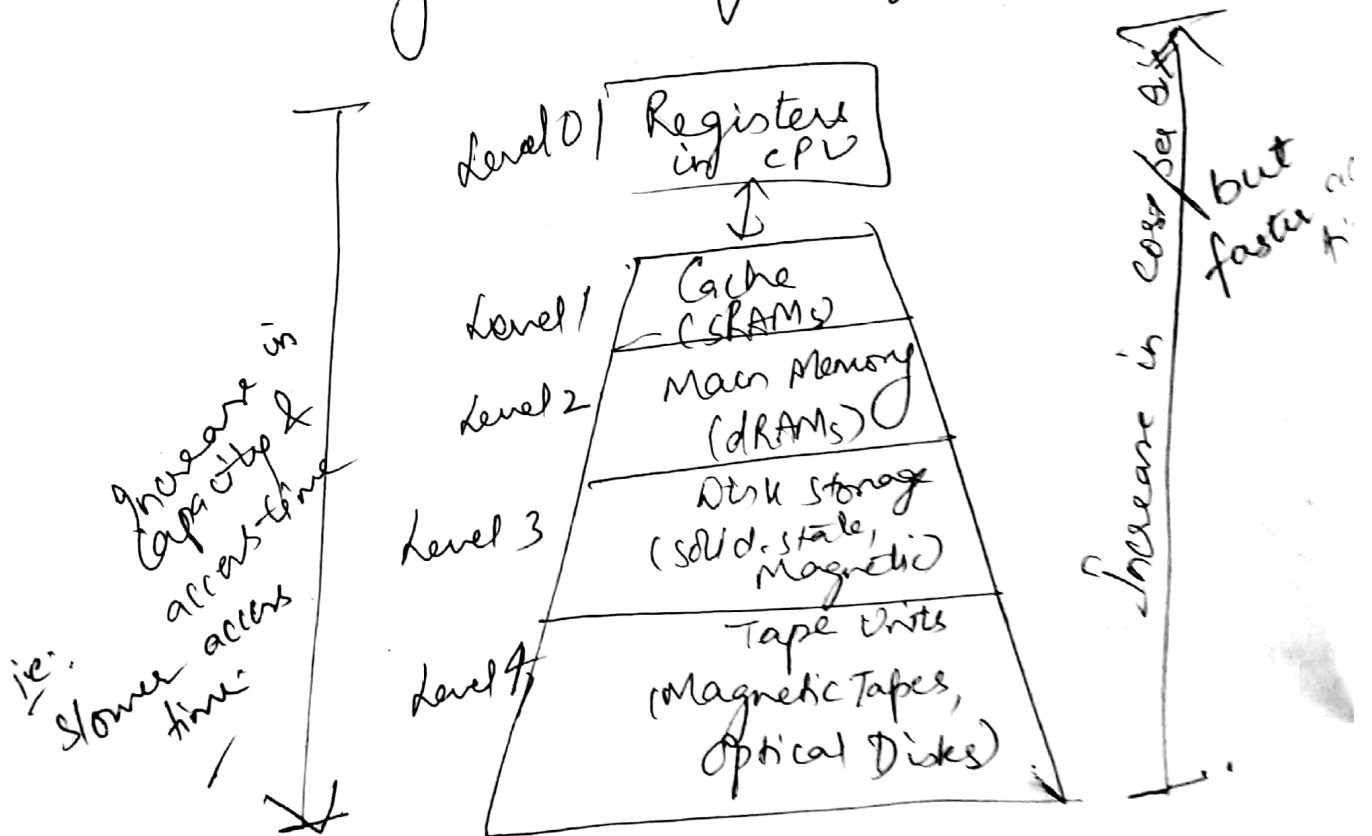 Level 0
Registers
in CPU
Level 1
Cache
(SRAMs)
Level 2
Main Memory
(dRAMs)
Level 3
Disk Storage
(solid-state,
Magnetic)
Level 4
Tape Units
(Magnetic Tapes,
Optical Disks)
Increase in
capacity &
access-time
i.e. slower access
time.
Increase in cost per bit
but
faster